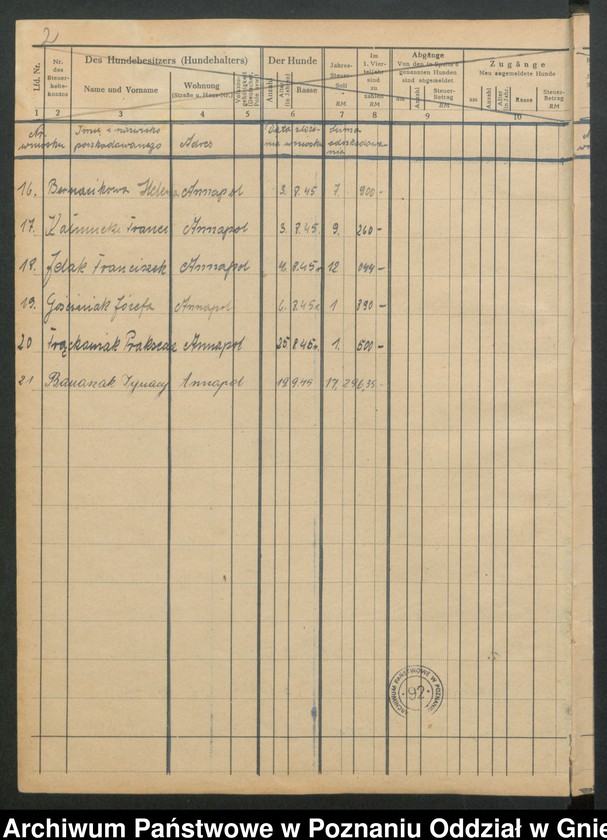 2
Lfd. Nr.
Nr. des Steuer- kontos
Des Hundebesitzers (Hundehalters)
Name und Vorname
Wohnung
(Straße u. Haus-Nr.)
Der Hunde
Anzahl
Alter (in Jahren)
Rasse
Jahres- Steuer- Soll
RM
Im 1. Viertel- jahr sind zu zahlen
RM
Abgänge
Von den in Spalte 6 genannten Hunden sind abgemeldet
am
Anzahl
Steuer- Betrag RM
Zugänge
Neu angemeldete Hunde
am
Anzahl
Alter in Jahr.
Rasse
Steuer- Betrag RM
1 2 3 4 5 6 7 8 9 10
Nr. wniosku
Imię i nazwisko poszkodowanego
Adres
Data złoże- nia wniosku
Suma odszkodowa- nia
16. Bernacikowa Helena Annapol 3. 8.45 7 900-
17. Annapol 3. 8.45. 9. 260-
18. Jelak Franciszek Annapol 4. 8.45 12 044-
19. Gościniak Józefa Annapol 6. 8.45 1 890-
20 Annapol 25 8.45 1. 500-
21 Banaszak Ignacy Annapol 19 9.45 17, 296,35-
ARCHIWUM PAŃSTWOWE W POZNANIU
92
Archiwum Państwowe w Poznaniu Oddział w Gnie